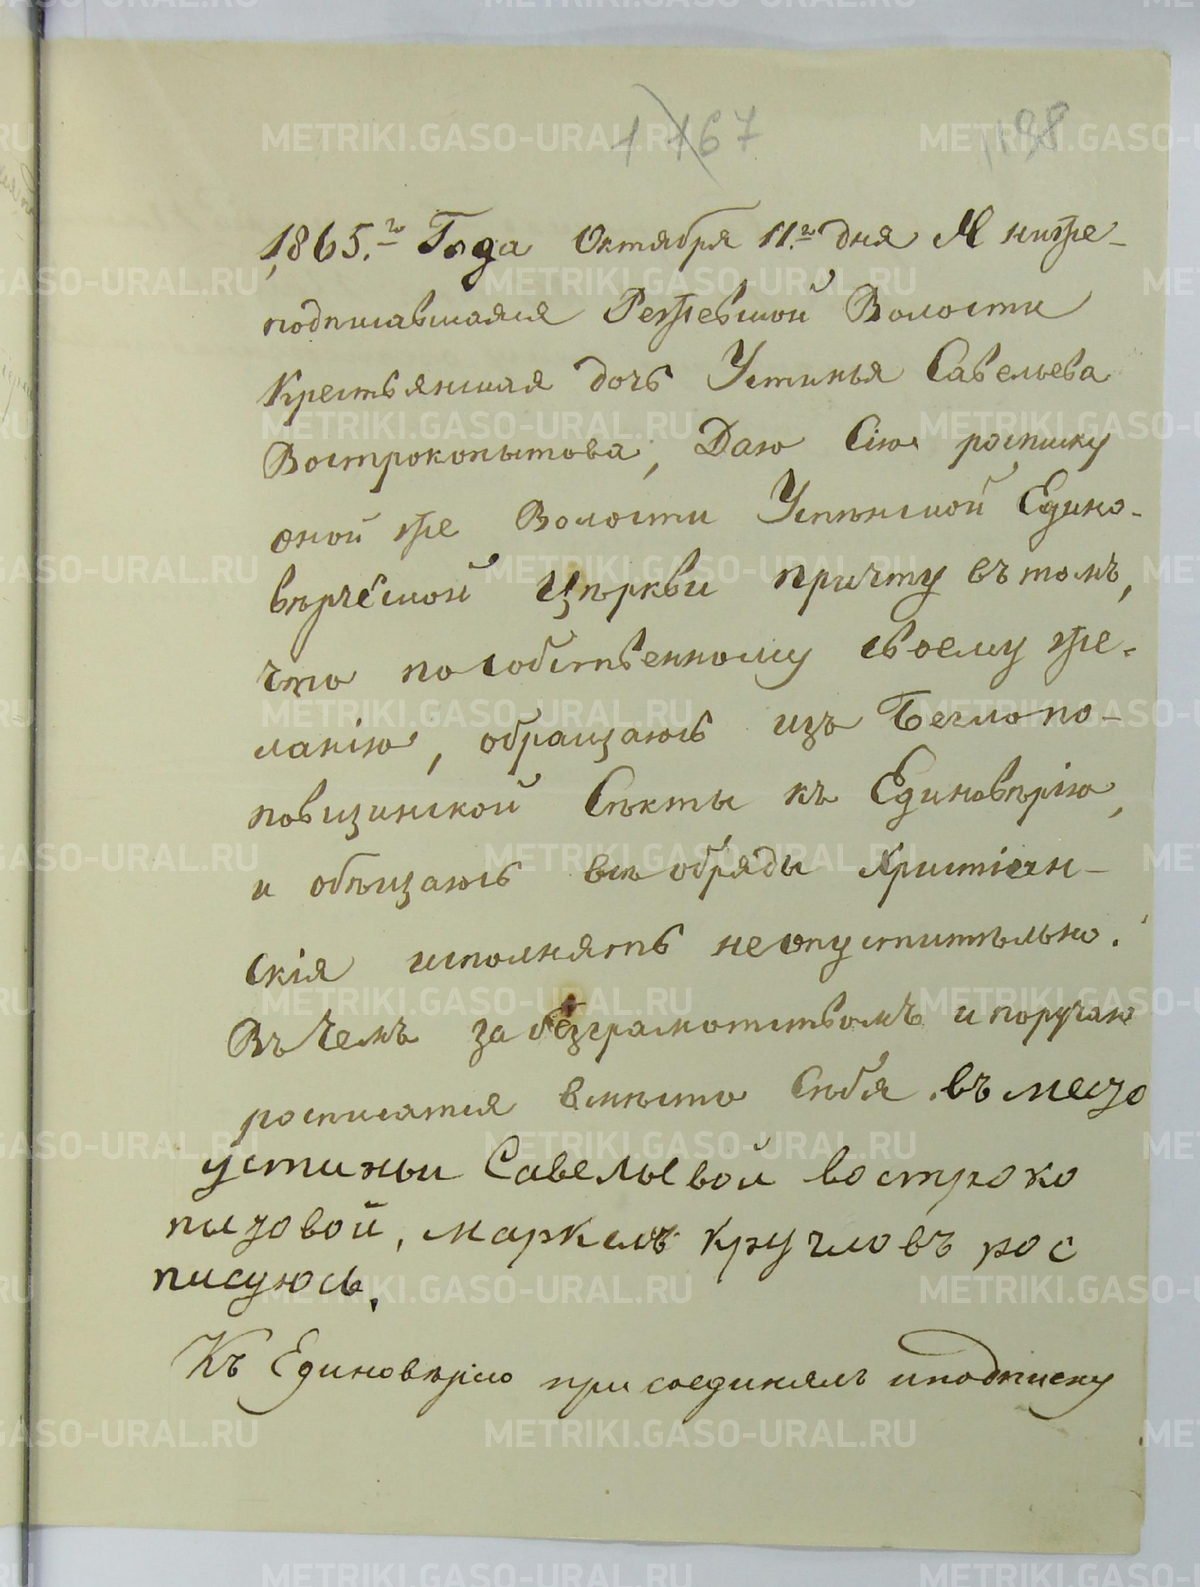 167
1198
1865.го Года Октября 11.го дня Я ниже-
подписавшаяся Режевской Волости
Крестьянская дочь Устинья Савельева
Вострокопытова, Даю Сію росписку
оной же Волости Успѣнской Едино-
вѣрческой Цѣркви причту въ томъ,
что по собственному своему же-
ланію, обращаюсь изъ Бегло по-
повщинской Сѣкты къ Единовѣрію,
и обѣщаюсь всѣ обряды Христіан-
скія исполнять неопустительно.
Въ чемъ за безграмотствомъ и поручаю
росписатся вмѣсто Себя. въ месзо
устиньи Савелые вой востроко
пызовой, маркелъ кругловъ рос
писуюсь.
Къ Единовѣрію присоединялъ и подписку
METRIKI.GASO-URAL.RU